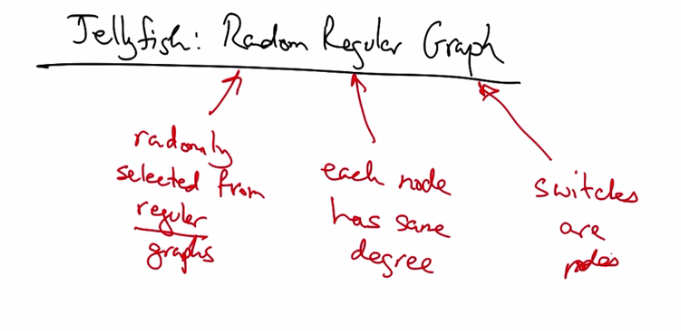 Jellyfish: Radom Regular Graph
radomly
selected from
reguler
graphs
each node
has same
degree
switches
are
nodes